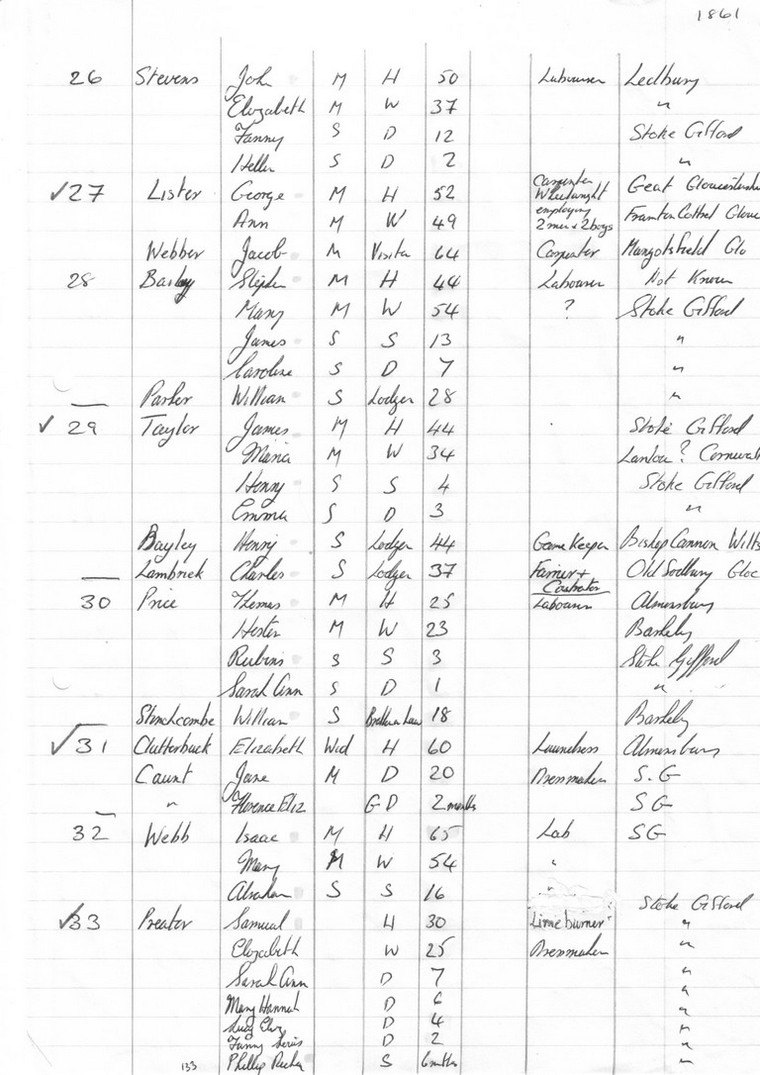 1861
26 Stevens John M H 50 Labourer Ledbury
Elizabeth M W 37 "
Fanny S D 12 Stoke Gifford
Hellen S D 2 "
✓27 Lister George M H 52 Carpenter Wheelwright Geat Gloucestershi
Ann M W 49 employing 2 men & 2 boys Framton Cottrel Glouc
Webber Jacob M Visitor 64 Carpenter Mangotsfield Glo
28 Bailey Stephen M H 44 Labourer Not Known
Mary M W 54 ? Stoke Gifford
James S S 13 "
Caroline S D 7 "
Parker William S Lodger 28 "
✓ 29 Taylor James M H 44 Stoke Gifford
Maria M W 34 ? Cornwall
Henry S S 4 Stoke Gifford
Emma S D 3 "
Bayley Henry S Lodger 44 Game Keeper Bishop Cannon Wilts
Lambrick Charles S Lodger 37 Farrier + Castrator Old Sodbury Gloc
30 Price Thomas M H 25 Labourer Almonsbury
Hester M W 23 Barkely
Rubins S S 3 Stoke Gifford
Sarah Ann S D 1 "
Stinchcombe William S Brother in Law 18 Barkely
✓31 Clutterbuck Elizabeth Wid H 60 Laundress Almonsbury
Caunt Jane M D 20 Dressmaker S.G
" Florence Eliz G D 2 months S G
32 Webb Isaac M H 65 Lab S G
Mary M W 54 "
Abraham S S 16 " Stoke Gifford
✓33 Preator Samual H 30 Limeburner "
Elizabeth W 25 Dressmaker "
Sarah Ann D 7 "
Mary Hannah D 6 "
Lucy Eliz D 4 "
Fanny D 2 "
133 Phillip S 6 mths "